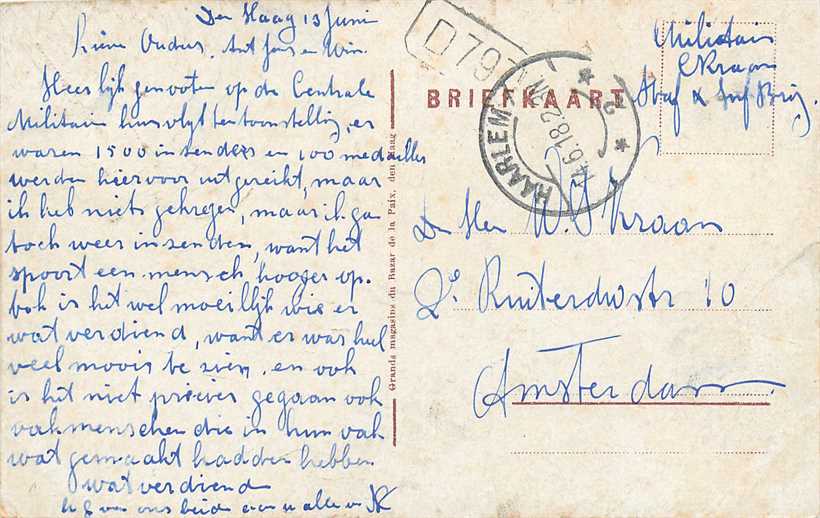 Den Haag 13 Juni
Lieve Ouders, Ant Jans en Wim.
Heerlijk genooten op de Centrale
Militair huisvlyt tentoonstelling, er
waren 1500 inzenders en 100 medailles
werden hiervoor uitgereikt, maar
ik heb niets gekregen, maar ik ga
toch weer inzenden, want het
spoort een mensch hooger op.
ook is het wel moeilijk wie er
wat verdiend, want er was heel
veel moois te zien, en ook
is het niet precies gegaan ook
vakmenschen die in hun vak
wat gemaakt hadden hebben
wat verdiend
van ons beide aan u alle
Grands magasins du Bazar de la Paix, den Haag
D797
BRIEFKAART
HAARLEM
14.6.18.2-3N
Militair
CKraan
Staf
De Heer W. J Kraan
De Ruiterdwstr 10
Amsterdam